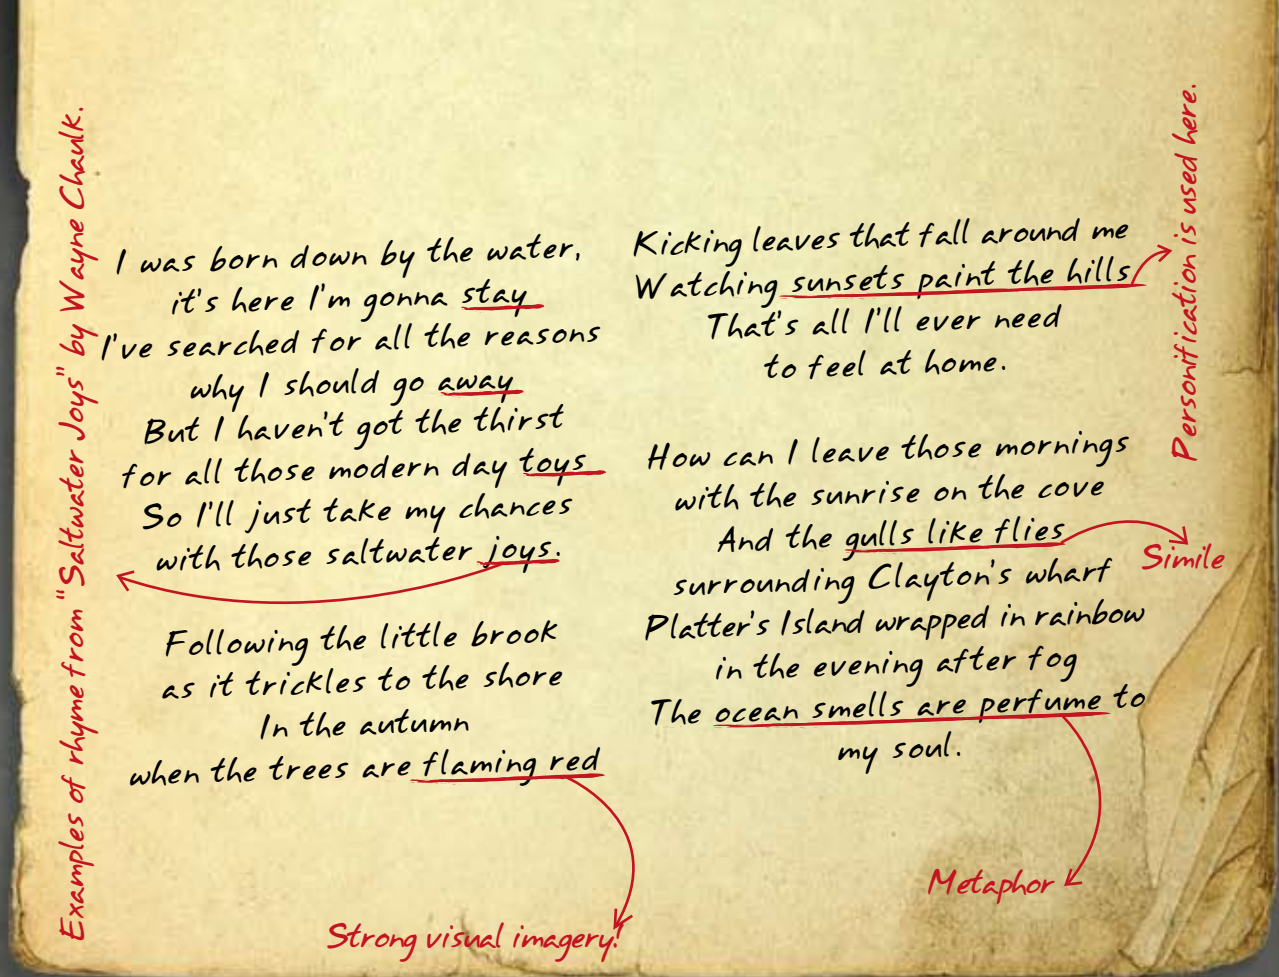 Examples of rhyme from "Saltwater Joys" by Wayne Chaulk.
I was born down by the water,
it's here I'm gonna stay
I've searched for all the reasons
why I should go away
But I haven't got the thirst
for all those modern day toys
So I'll just take my chances
with those saltwater joys.
Following the little brook
as it trickles to the shore
In the autumn
when the trees are flaming red
Strong visual imagery!
Kicking leaves that fall around me
Watching sunsets paint the hills
That's all I'll ever need
to feel at home.
Personification is used here.
How can I leave those mornings
with the sunrise on the cove
And the gulls like flies
Simile
surrounding Clayton's wharf
Platter's Island wrapped in rainbow
in the evening after fog
The ocean smells are perfume to
my soul.
Metaphor